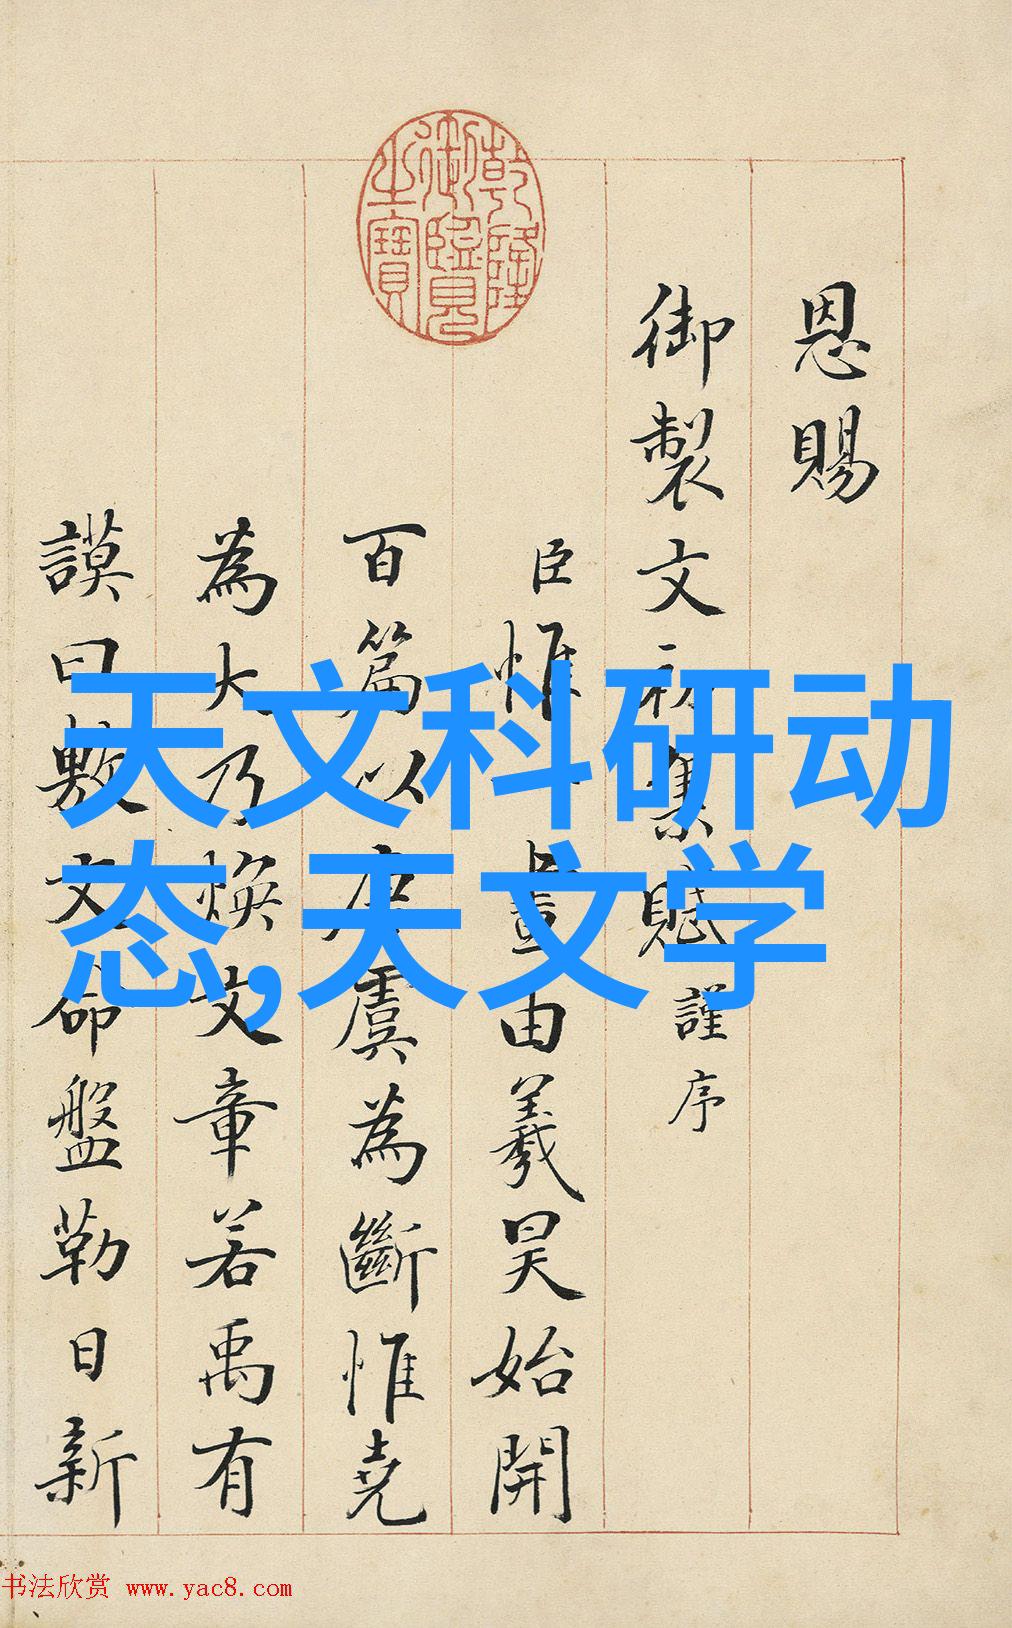 乾隆御覽之寶
恩賜
御製文初集賦謹序
臣惟一畫由羲昊始開
百篇以唐虞為斷惟堯
為大乃煥文章若禹有
謨曰敷文命盤勒日新
天文科研动
态,天文学
书法欣赏 www.yac8.com